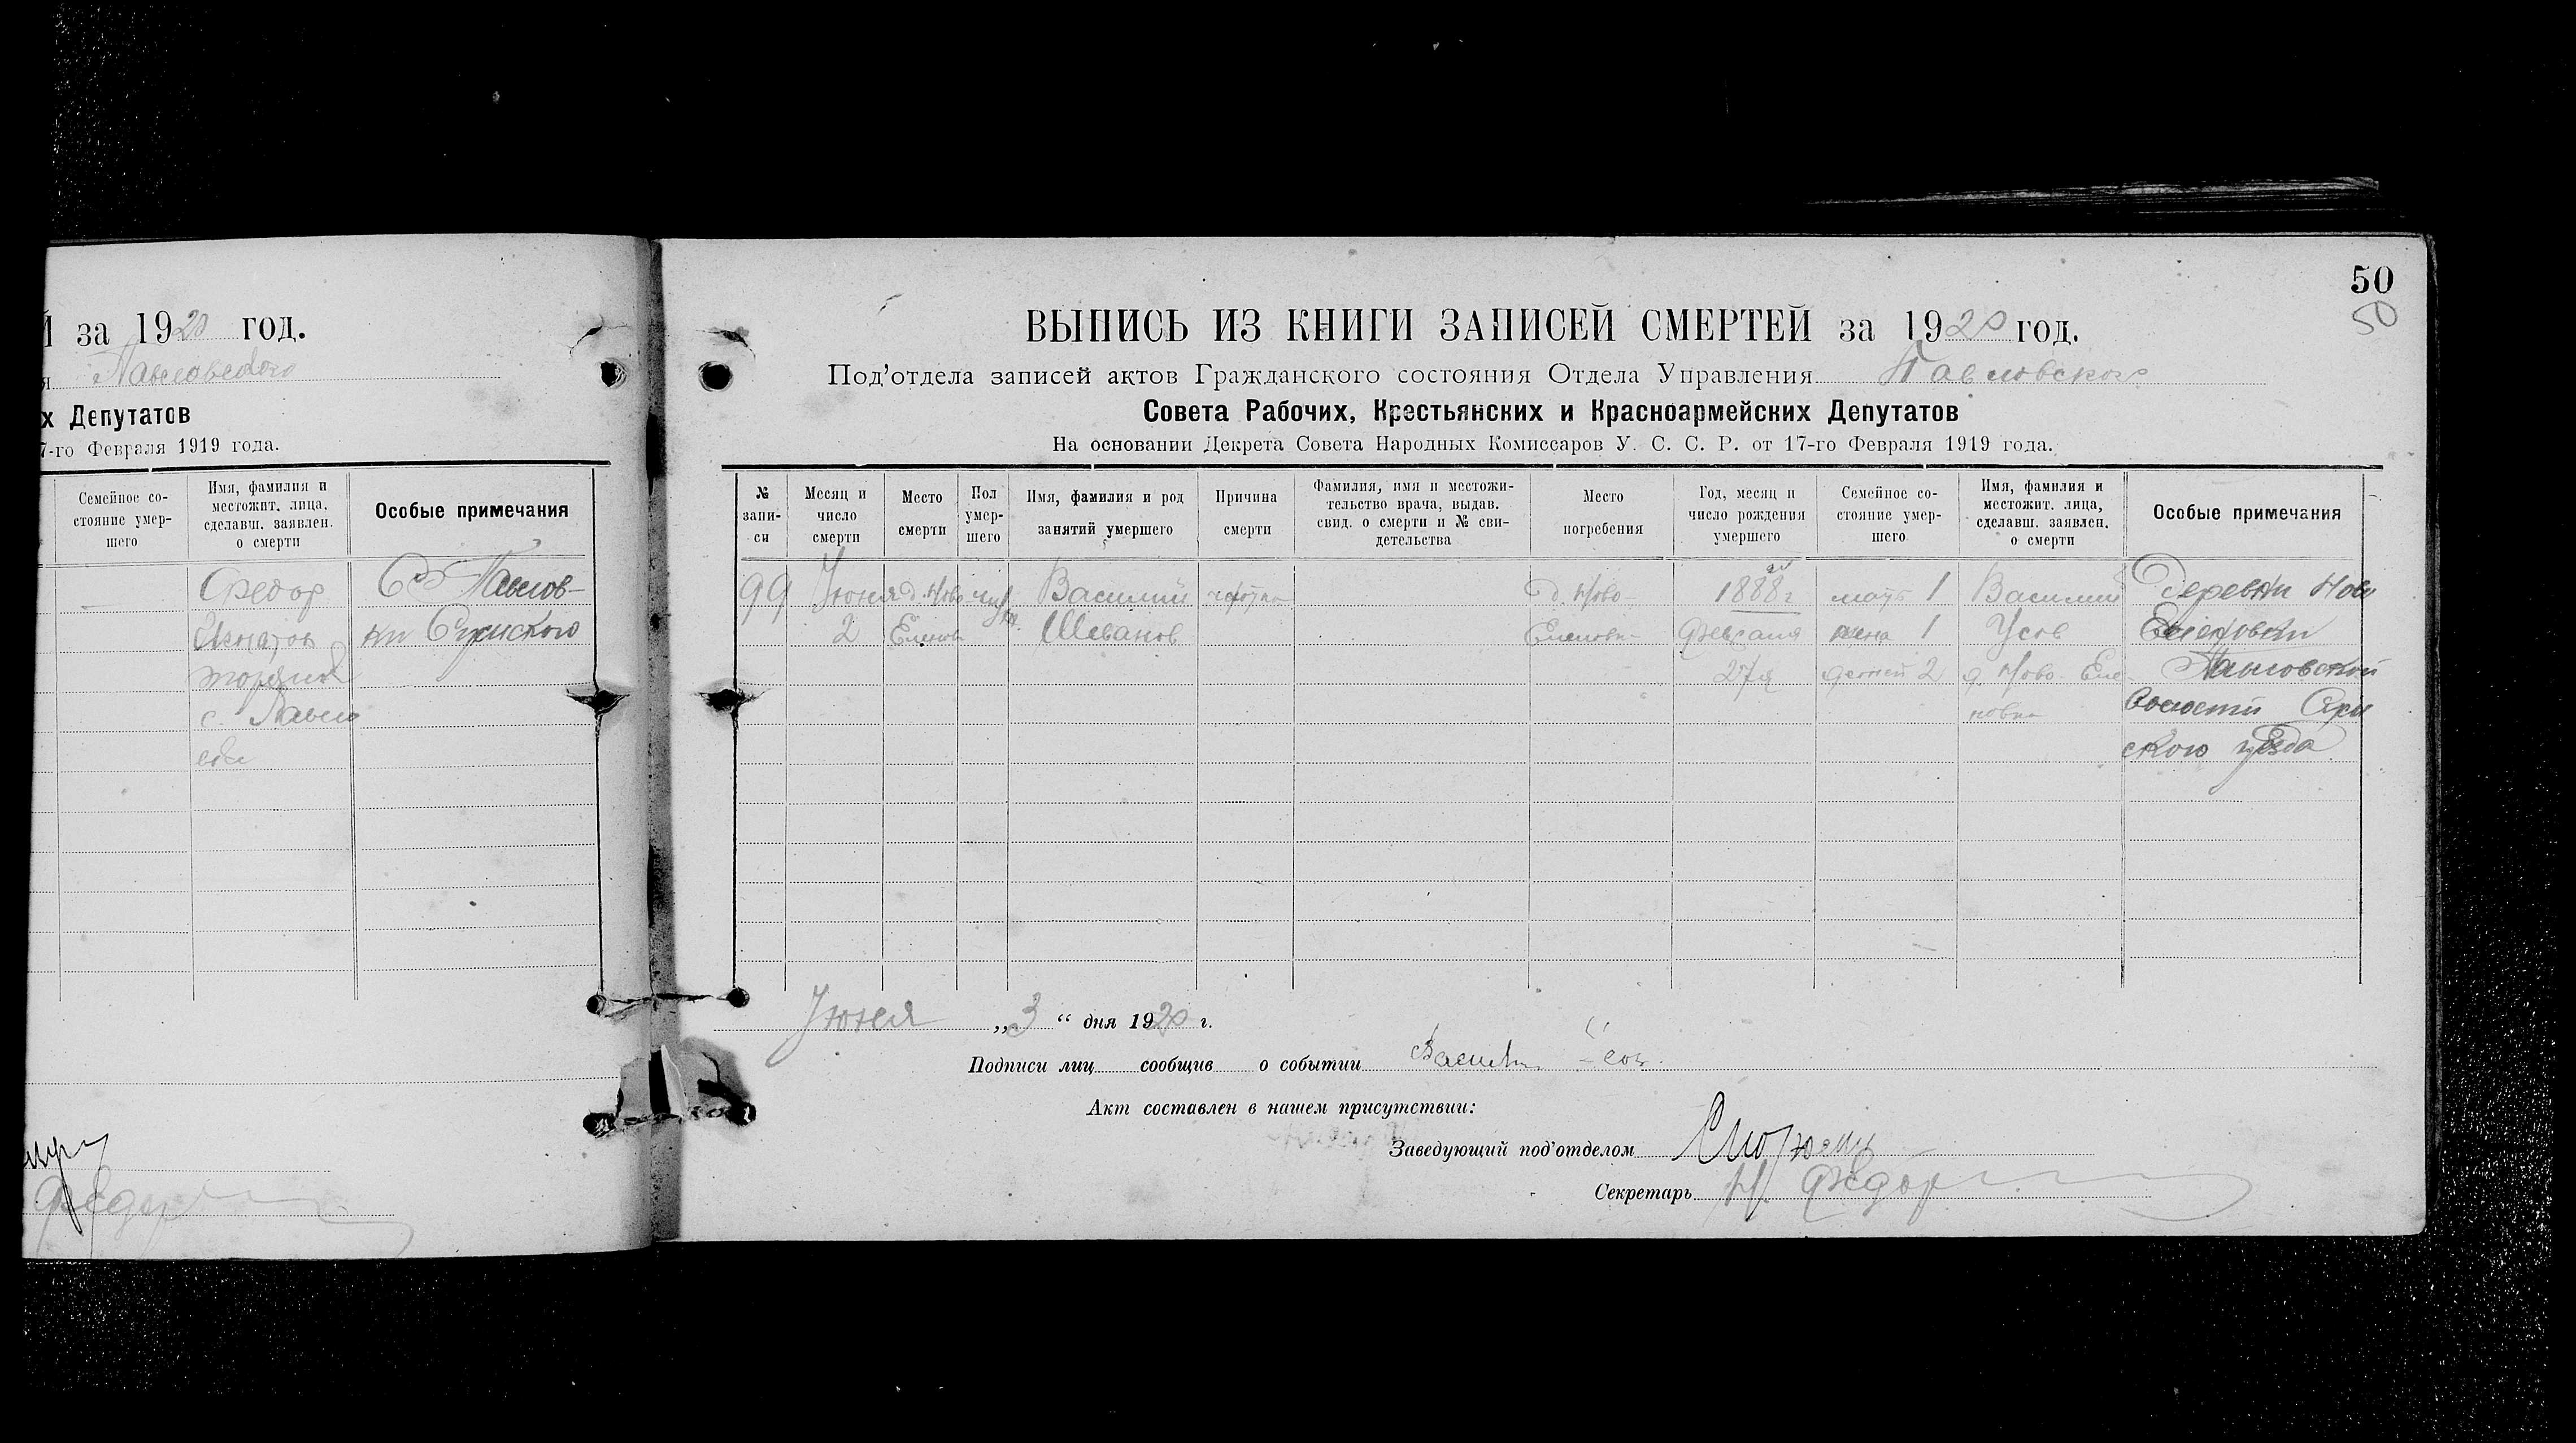 за 1920 год.
Павловского
х Депутатов
7-го Февраля 1919 года.
Семейное со-
стояние умер-
шего
Имя, фамилия и
местожит. лица,
сделавш. заявлен.
о смерти
Особые примечания
Федор
с. Павло
С. Павлов-
ки Сумского
50
50
ВЫПИСЬ ИЗ КНИГИ ЗАПИСЕЙ СМЕРТЕЙ за 1920 год.
Под'отдела записей актов Гражданского состояния Отдела Управления Павловского
Совета Рабочих, Крестьянских и Красноармейских Депутатов
На основании Декрета Совета Народных Комиссаров У. С. С. Р. от 17-го Февраля 1919 года.
№
запи-
си
Месяц и
число
смерти
Место
смерти
Пол
умер-
шего
Имя, фамилия и род
занятий умершего
Причина
смерти
Фамилия, имя и местожи-
тельство врача, выдав.
свид. о смерти и № сви-
детельства
Место
погребения
Год, месяц и
число рождения
умершего
Семейное со-
стояние умер-
шего
Имя, фамилия и
местожит. лица,
сделавш. заявлен.
о смерти
Особые примечания
99
Июня
2
д. Ново-
Еленов
Василий
Шеванов
чахотка
д. Ново-
Еленовк
1888 г
Февраля
27я
мать 1
жена 1
детей 2
Василий
Усов
д. Ново-Еле-
новка
Деревни Ново
Еленовки
Павловской
волости Сум
ского уезда
Июня „3“ дня 1920 г.
Подписи лиц сообщив о событии Василий
Акт составлен в нашем присутствии:
Заведующий под'отделом
Секретарь